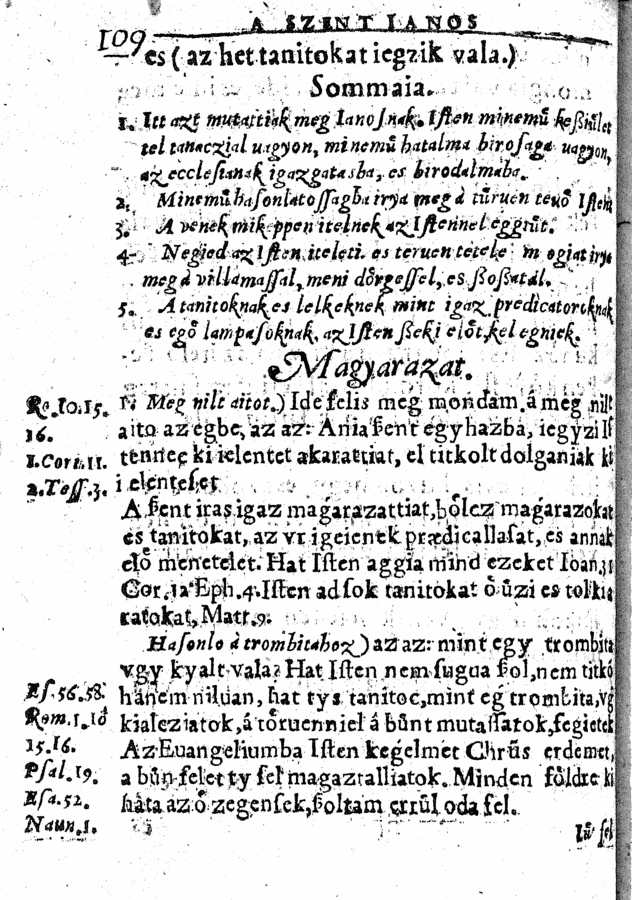 109
A SZENT IANOS
es ( az het tanitokat iegzik vala.)
Sommaia.
1. Itt azt mutattiak meg Ianosnak. Iſten minemű keßűlet
tel tanaczial uagyon, minemű hatalma biroſaga uagyon,
az eccleſianak igazgatasba, es birodalmaba.
2. Minemű haſonlatoſſagba irya meg á tűruen teuő Iſtent
3. A venek mikeppen itelnek az Iſtennel eggiűt.
4. Negied az Iſten iteleti es teruen tetele megiat irya
meg á villamaſſal, meni dőrgeſſel, es ßoßatal.
5. A tanitoknak es lelkeknek mint igaz prędicatoroknak
es egő lampaſoknak, az Iſten ßeki előt kel egniek.
Magyarazat.
Ro.10.15.
16.
1.Cor.11.
2.Teſſ.3.
1. Meg nilt aitot.) Ide felis meg mondam á meg nilt
aito az egbe, az az: Ania ßent egyhazba, iegyzi Iſ
tennec ki ielentet akarattiat, el titkolt dolganiak ki
ielenteſet
A ßent iras igaz magárazattiat, bőlcz magárazokat
es tanitokat, az vr igeienek prædicallaſat, es annak
elő menetelet. Hat Iſten aggia mind ezeket Ioan.3.
Cor. 12 Eph. 4. Iſten ad ſok tanitokat ő űzi es tolkia
ratokat, Matt. 9.
Haſonlo á trombitahoz) az az: mint egy trombita
vgy kyalt vala? Hat Iſten nem ſugua ßol, nem titkő
hanem niluan, hat tys tanitoc, mint eg trombita, vg
kialcziatok, á tőruenniel á bűnt mutaſſatok, fegietek
Az Euangeliumba Iſten kegelmet Chrűs erdemet,
a bűn felet ty fel magaztalliatok. Minden főldre ki
háta az ő zegenſek, ßoltam errűl oda fel.
Eſ.56.58.
Rom.1.10
15.16.
Pſal.19.
Eſa.52.
Naun.1.
Iű fel